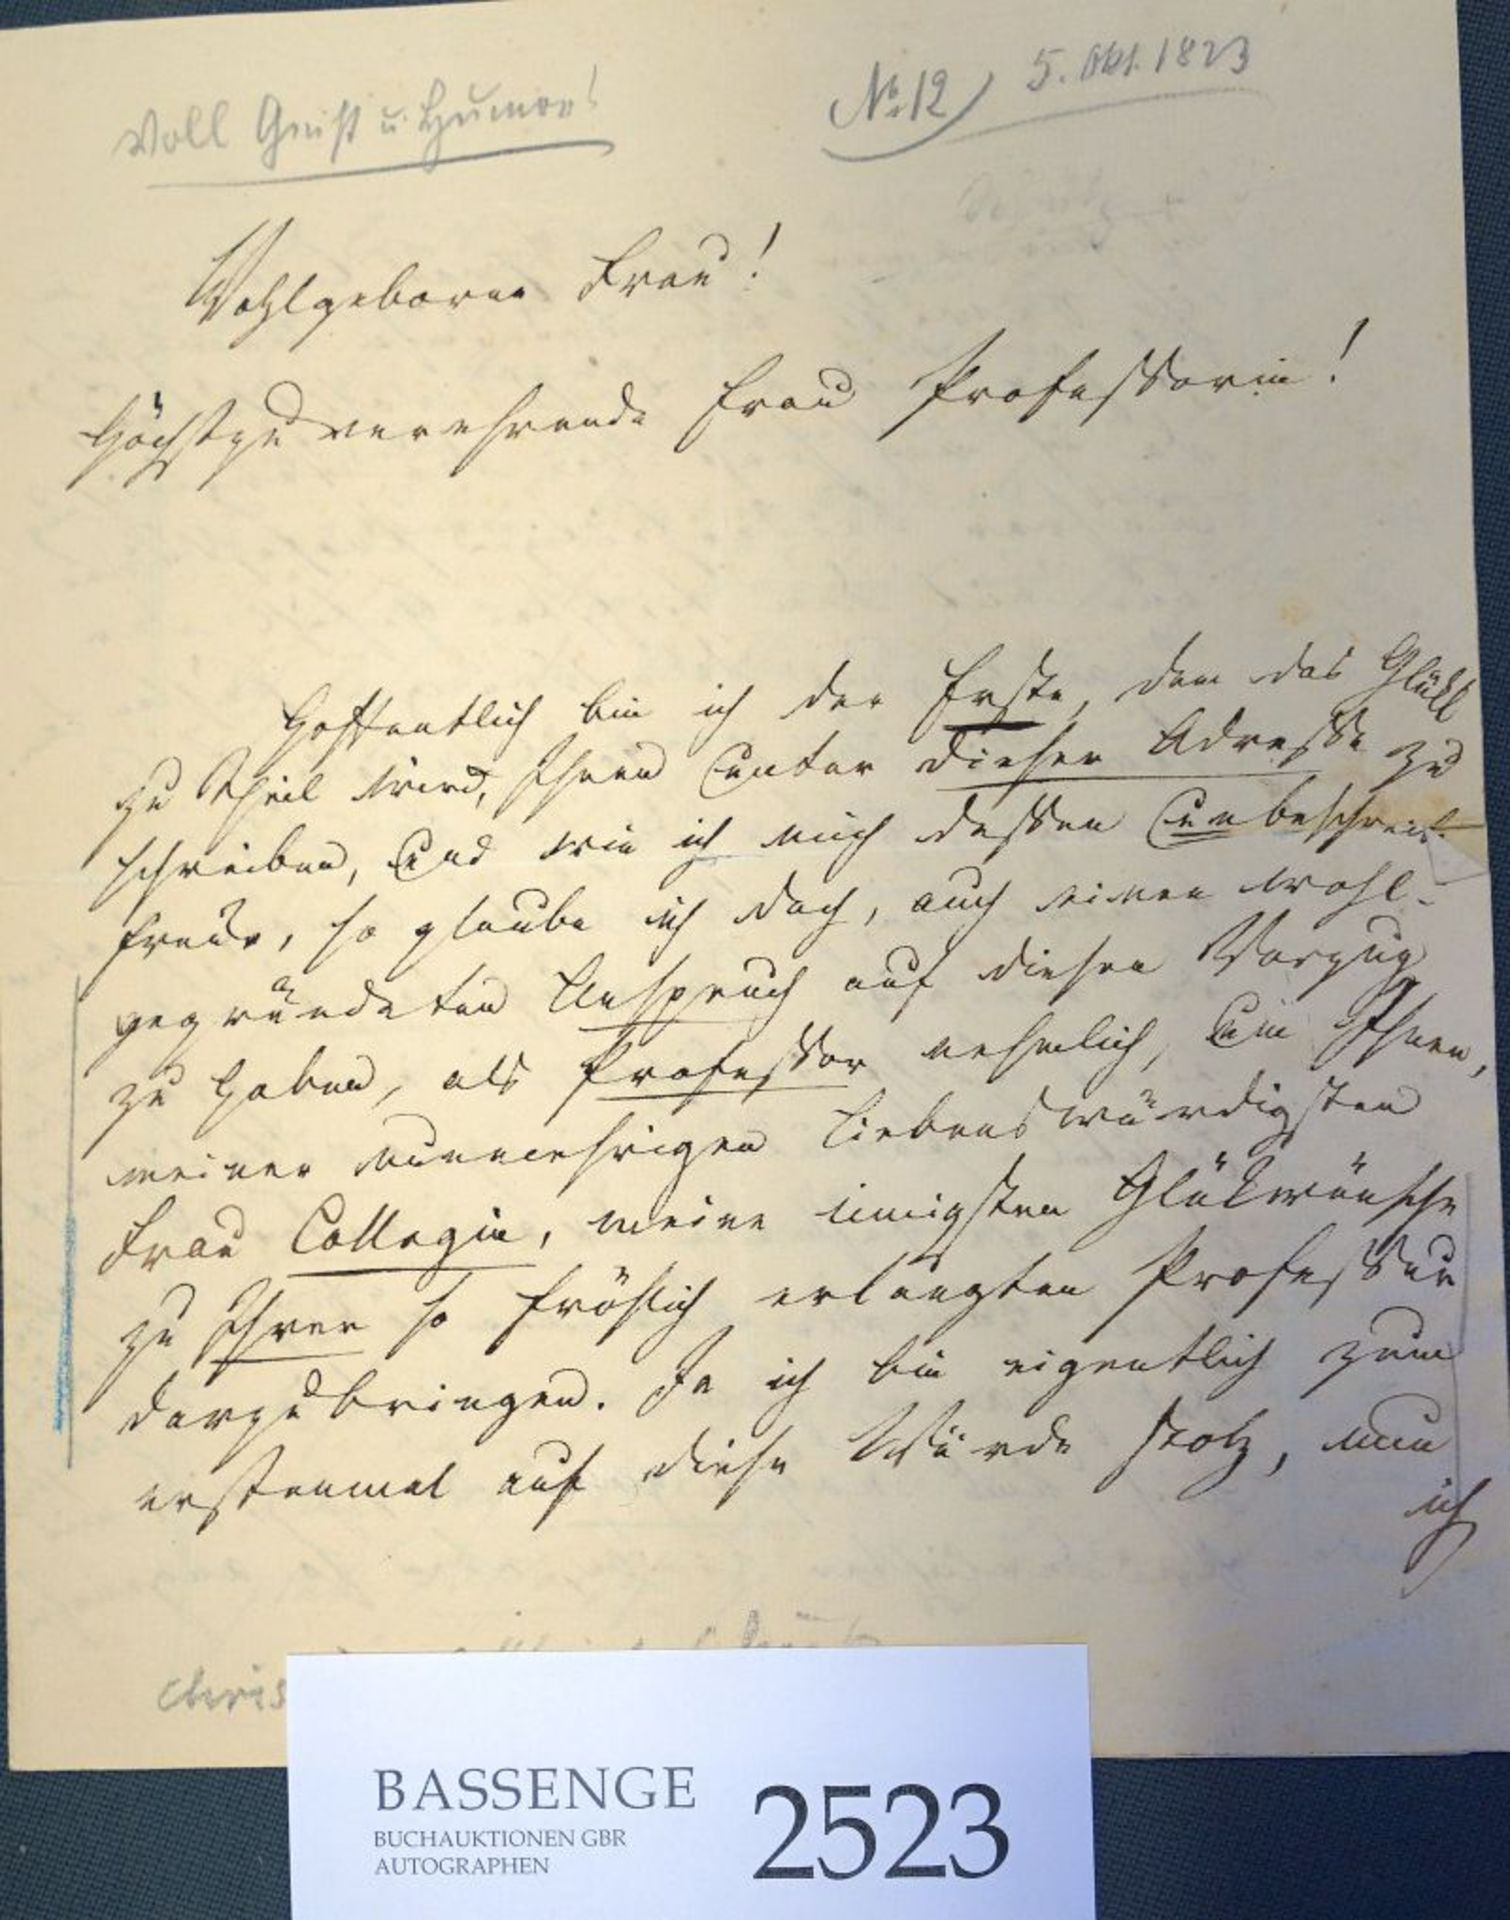 Voll Geist u. Humor!
No 12) 5. Okt. 1823
Wohlgeborne Frau!
Höchstzuverehrende Frau Professorin!
Hoffentlich bin ich der Erste, dem das Glükk
zu Theil wird, Ihnen unter dieser Adresse zu
schreiben, und wie ich mich dessen unbeschreibl.
freue, so glaube ich doch, auch einen wohl-
gegründeten Anspruch auf diesen Vorzug
zu haben, als Professor nehmlich, um Ihnen,
meiner nunmehrigen liebenswürdigsten
Frau Collegin, meine innigsten Glükwünsche
zu Ihrer so fröhlich erlangten Professur
darzubringen. Ja ich bin eigentlich zum
erstenmal auf diese Würde stolz, nun
ich
Chris
BASSENGE
BUCHAUKTIONEN GBR
AUTOGRAPHEN
2523